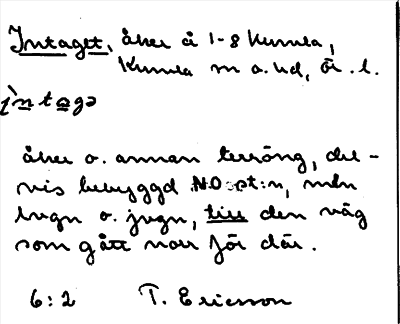 Intaget, åker å 1-8 Kumla,
Kumla sn o. hd, Ör. l.
ìntaga
åker o. annan terräng, del-
vis bebyggd N.O. st:n, mln
lvgn o. jvgn, till den väg
som gått norr för där.
6:2 T. Ericsson